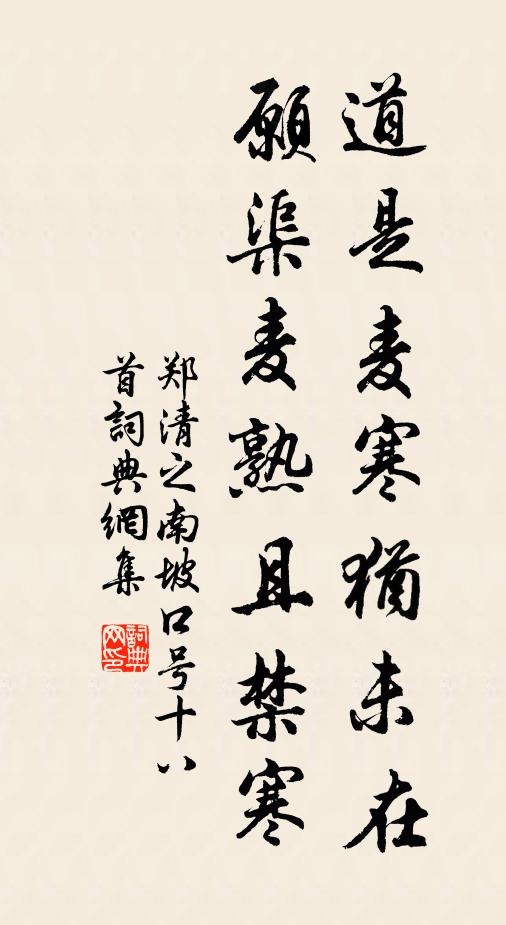 道是麦寒犹未在
愿渠麦熟且禁寒
郑清之南坡口号十八
首詞典網集
詞典
网印